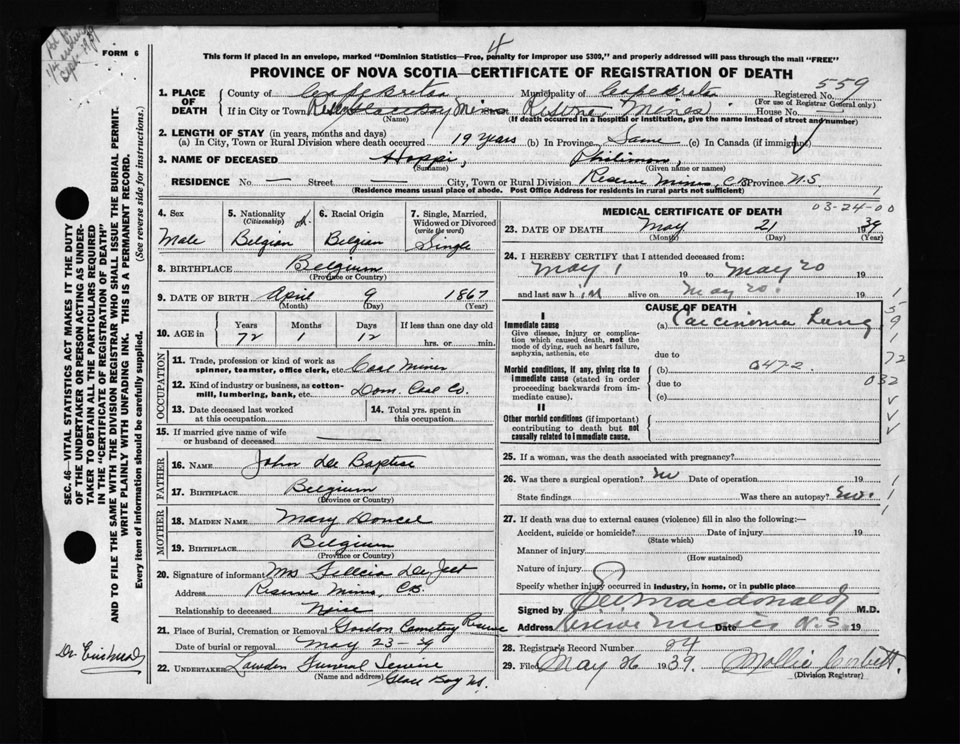 FORM 6
4
This form if placed in an envelope, marked "Dominion Statistics—Free, penalty for improper use $300," and properly addressed will pass through the mail "FREE"
PROVINCE OF NOVA SCOTIA—CERTIFICATE OF REGISTRATION OF DEATH
1. PLACE OF DEATH County of Cape Breton Municipality of Cape Breton Registered No. 559
(For use of Registrar General only)
If in City or Town Reserve Mines House No.
(Name) (If death occurred in a hospital or institution, give the name instead of street and number)
2. LENGTH OF STAY (in years, months and days)
(a) In City, Town or Rural Division where death occurred 19 years (b) In Province Same (c) In Canada (if immigrant)
3. NAME OF DECEASED Hoppi, Philimon,
(Surname) (Given name or names)
RESIDENCE No. — Street — City, Town or Rural Division Reserve Mines, C.B. Province N.S.
(Residence means usual place of abode. Post Office Address for residents in rural parts not sufficient)
4. Sex Male
5. Nationality (Citizenship) Belgian
6. Racial Origin Belgian
7. Single, Married, Widowed or Divorced (write the word) Single
8. BIRTHPLACE Belgium
(Province or Country)
9. DATE OF BIRTH April 9 1867
(Month) (Day) (Year)
10. AGE in Years 72 Months 1 Days 12 If less than one day old hrs. or min.
OCCUPATION
11. Trade, profession or kind of work as spinner, teamster, office clerk, etc. Coal Miner
12. Kind of industry or business, as cotton-mill, lumbering, bank, etc. Dom. Coal Co.
13. Date deceased last worked at this occupation
14. Total yrs. spent in this occupation
15. If married give name of wife or husband of deceased —
FATHER
16. NAME John De Baptise
17. BIRTHPLACE Belgium
(Province or Country)
MOTHER
18. MAIDEN NAME Mary Doncel
19. BIRTHPLACE Belgium
(Province or Country)
20. Signature of informant Mrs
Address Reserve Mines, C.B.
Relationship to deceased Neice
21. Place of Burial, Cremation or Removal Gordon Cemetery Reserve
Date of burial or removal May 23-39
22. UNDERTAKER Lawden Funeral Service
(Name and address) Glace Bay N.S.
MEDICAL CERTIFICATE OF DEATH
03-24-00
23. DATE OF DEATH May 21 1939
(Month) (Day) (Year)
24. I HEREBY CERTIFY that I attended deceased from:
May 1 19 to May 20 19
and last saw him alive on May 20. 19
CAUSE OF DEATH
I
Immediate cause (a) Carcinoma Lung
Give disease, injury or complication which caused death, not the mode of dying, such as heart failure, asphyxia, asthenia, etc
due to
Morbid conditions, if any, giving rise to immediate cause (stated in order proceeding backwards from immediate cause). (b) 0472
due to
(c)
II
Other morbid conditions (if important) contributing to death but not causally related to immediate cause.
72
032
25. If a woman, was the death associated with pregnancy?
26. Was there a surgical operation? no Date of operation 19
State findings Was there an autopsy? no.
27. If death was due to external causes (violence) fill in also the following:—
Accident, suicide or homicide? Date of injury 19
(State which)
Manner of injury
(How sustained)
Nature of injury
Specify whether injury occurred in industry, in home, or in public place
Signed by Macdonald M.D.
Address Reserve Mines N.S. Date 19
28. Registrar's Record Number 24
29. Filed May 26 1939. Mollie Corbett.
(Division Registrar)
SEC. 46—VITAL STATISTICS ACT MAKES IT THE DUTY OF THE UNDERTAKER OR PERSON ACTING AS UNDERTAKER TO OBTAIN ALL THE PARTICULARS REQUIRED IN THE "CERTIFICATE OF REGISTRATION OF DEATH" AND TO FILE THE SAME WITH THE DIVISION REGISTRAR WHO SHALL ISSUE THE BURIAL PERMIT.
WRITE PLAINLY WITH UNFADING INK. THIS IS A PERMANENT RECORD.
Every item of information should be carefully supplied. (See reverse side for instructions.)